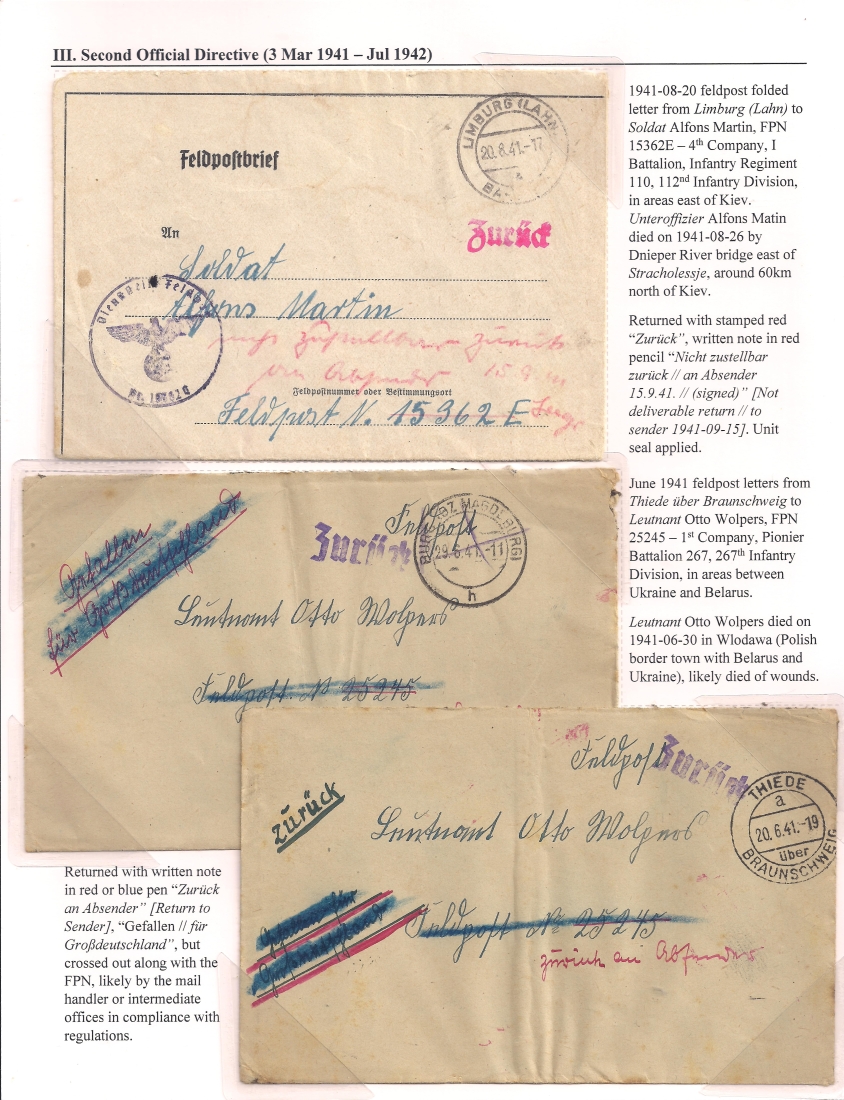 III. Second Official Directive (3 Mar 1941 – Jul 1942)
LIMBURG (LAHN)
20.8.41.-17
a
Feldpostbrief
An
Zurück
Soldat
Alfons Martin
zurück
an Absender 15.9.41
Feldpostnummer oder Bestimmungsort
Feldpost N. 15362 E
1941-08-20 feldpost folded
letter from Limburg (Lahn) to
Soldat Alfons Martin, FPN
15362E – 4th Company, I
Battalion, Infantry Regiment
110, 112nd Infantry Division,
in areas east of Kiev.
Unteroffizier Alfons Matin
died on 1941-08-26 by
Dnieper River bridge east of
Stracholessje, around 60km
north of Kiev.
Returned with stamped red
“Zurück”, written note in red
pencil “Nicht zustellbar
zurück // an Absender
15.9.41. // (signed)” [Not
deliverable return // to
sender 1941-09-15]. Unit
seal applied.
June 1941 feldpost letters from
Thiede über Braunschweig to
Leutnant Otto Wolpers, FPN
25245 – 1st Company, Pionier
Battalion 267, 267th Infantry
Division, in areas between
Ukraine and Belarus.
Leutnant Otto Wolpers died on
1941-06-30 in Wlodawa (Polish
border town with Belarus and
Ukraine), likely died of wounds.
Gefallen
für Großdeutschland
Zurück
Feldpost
BURG (BZ MAGDEBURG)
29.6.41.-11
h
Leutnant Otto Wolpers
Feldpost. No 25245
Feldpost
Zurück
THIEDE
a
20.6.41.-19
über
BRAUNSCHWEIG
zurück
Leutnant Otto Wolpers
Gefallen für
Großdeutschland
Feldpost No 25245
zurück an Absender
Returned with written note
in red or blue pen “Zurück
an Absender” [Return to
Sender], “Gefallen // für
Großdeutschland”, but
crossed out along with the
FPN, likely by the mail
handler or intermediate
offices in compliance with
regulations.